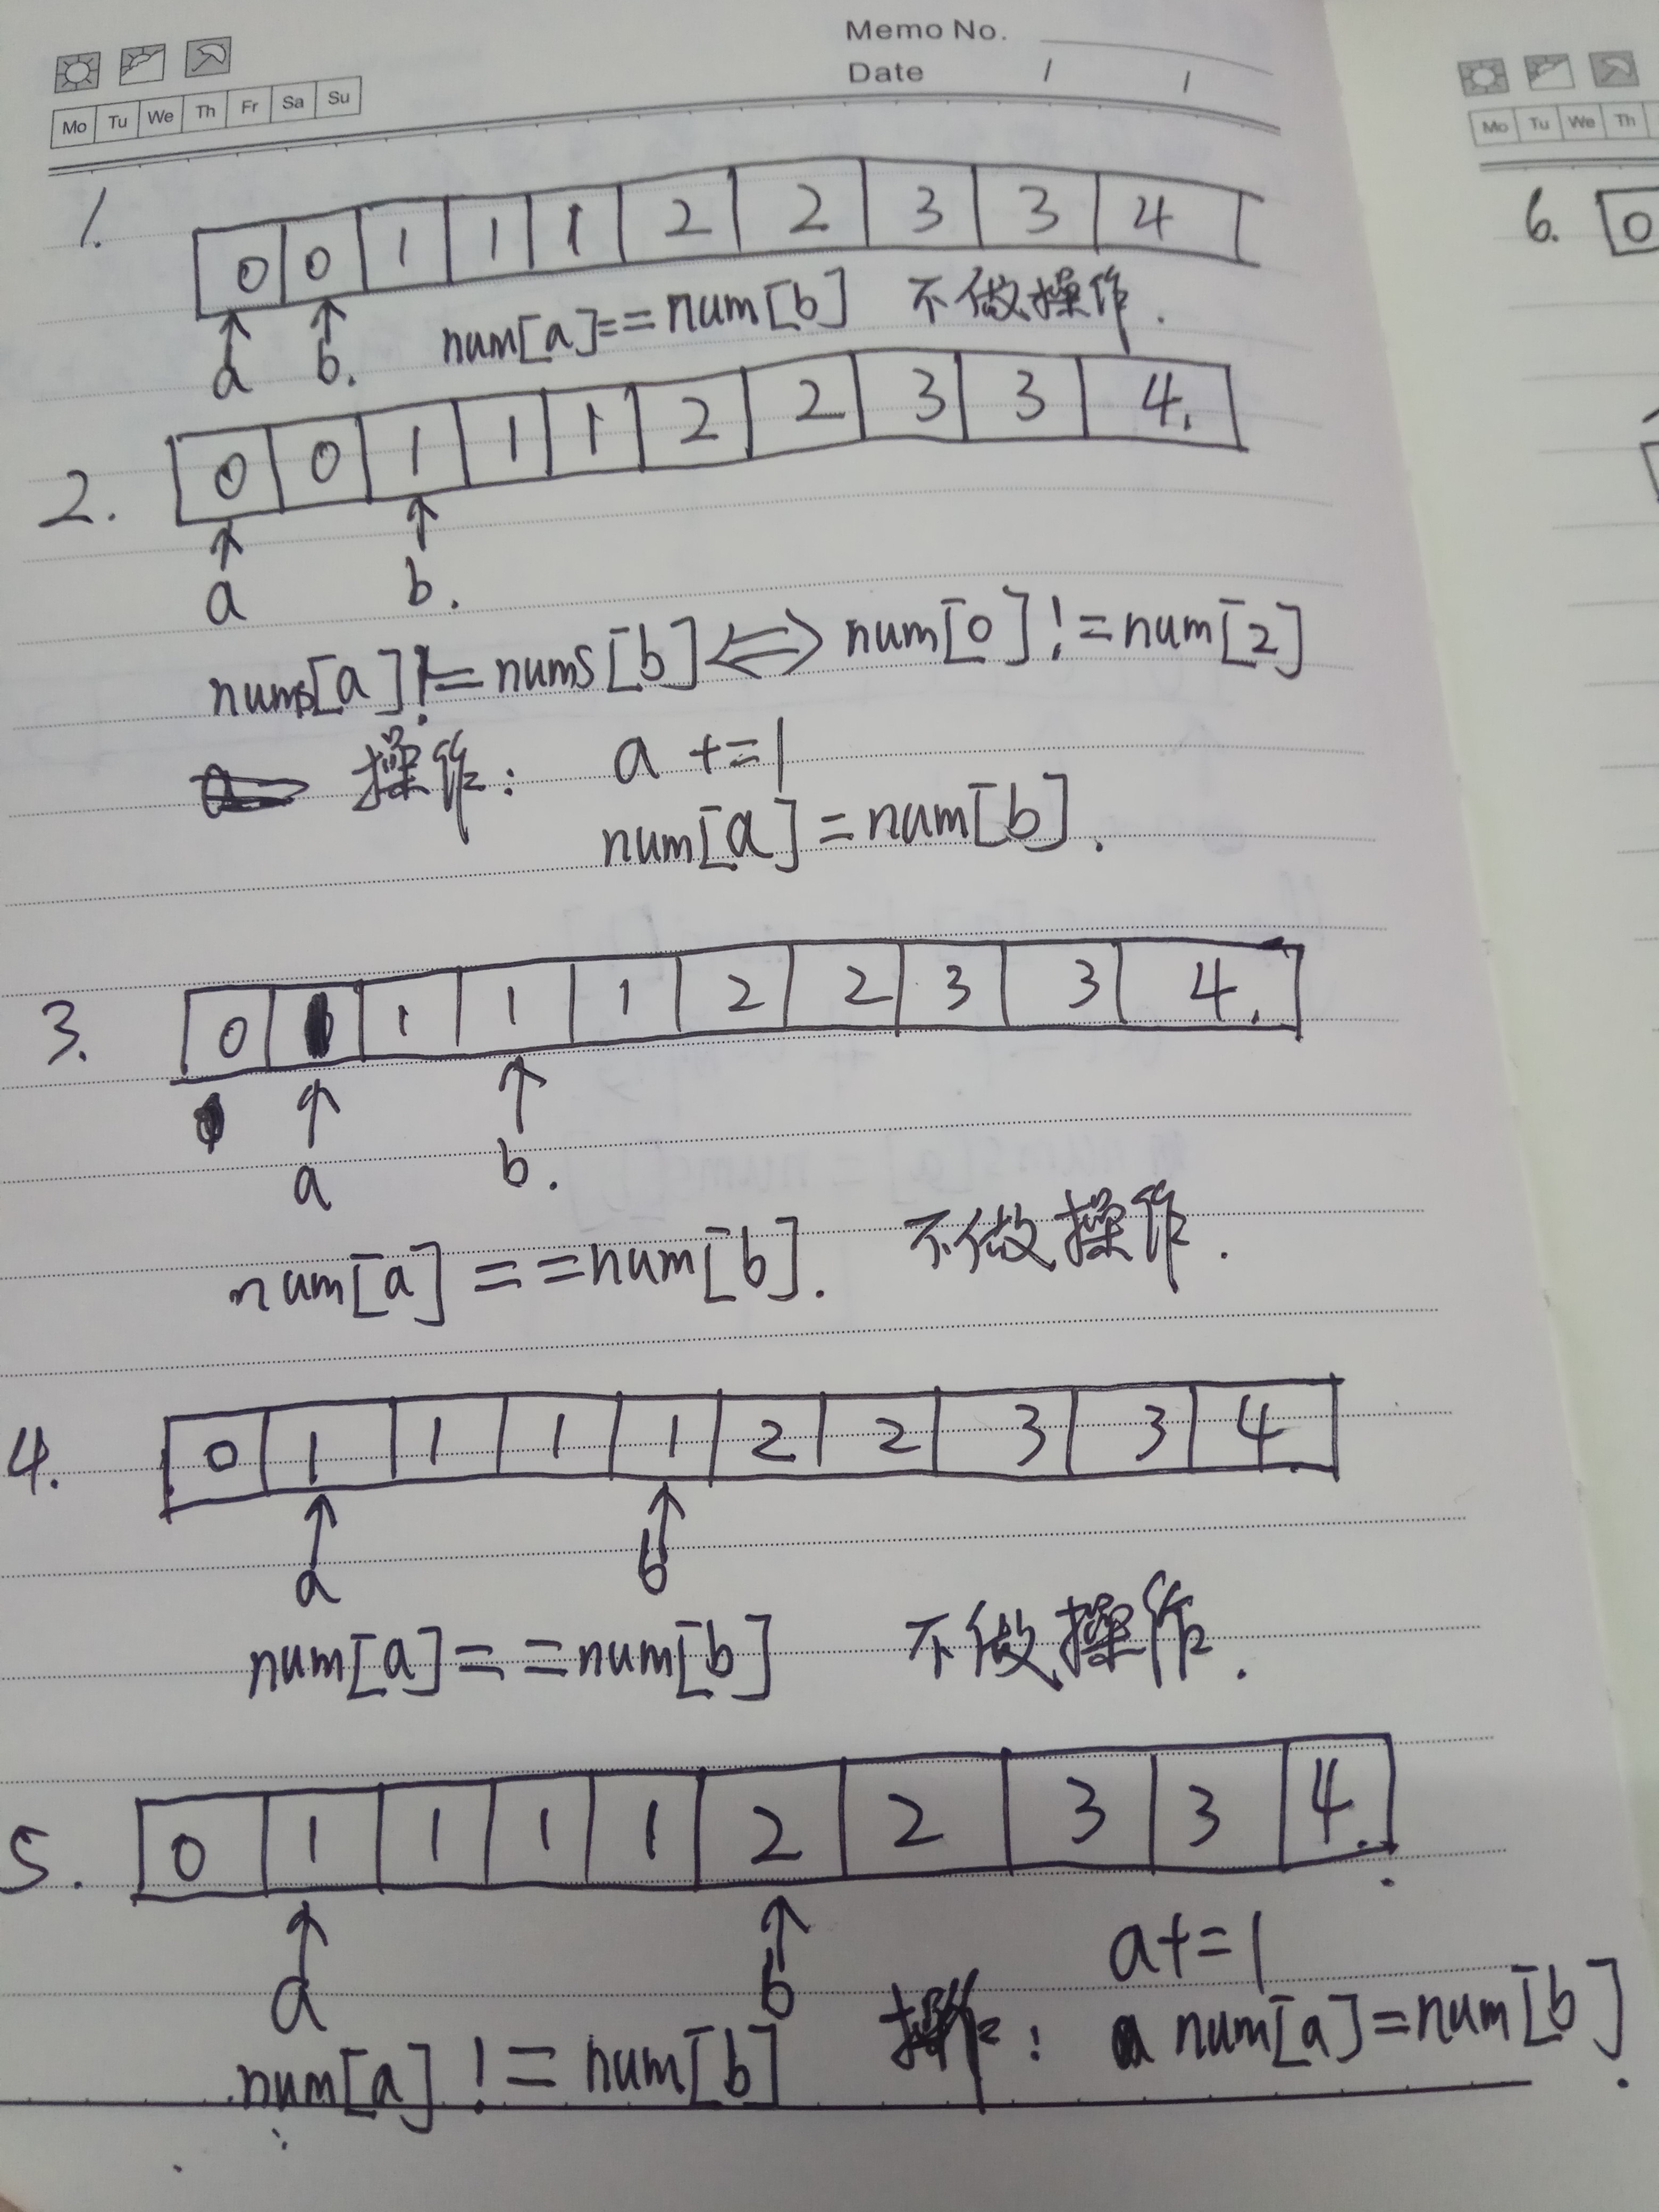 Memo No.
Date / /
Mo Tu We Th Fr Sa Su
1.
0 0 1 1 1 2 2 3 3 4
a b. num[a]==num[b] 不做操作.
2.
0 0 1 1 1 2 2 3 3 4.
a b.
nums[a]!=nums[b]⟺num[0]!=num[2]
操作: a +=1
num[a]=num[b].
3.
0 1 1 1 1 2 2 3 3 4.
a b.
num[a]==num[b]. 不做操作.
4.
0 1 1 1 1 2 2 3 3 4.
a b
num[a]==num[b] 不做操作.
5.
0 1 1 1 1 2 2 3 3 4.
a b
a+=1
num[a] != num[b] 操作: num[a]=num[b].
Mo Tu We Th
6. 0